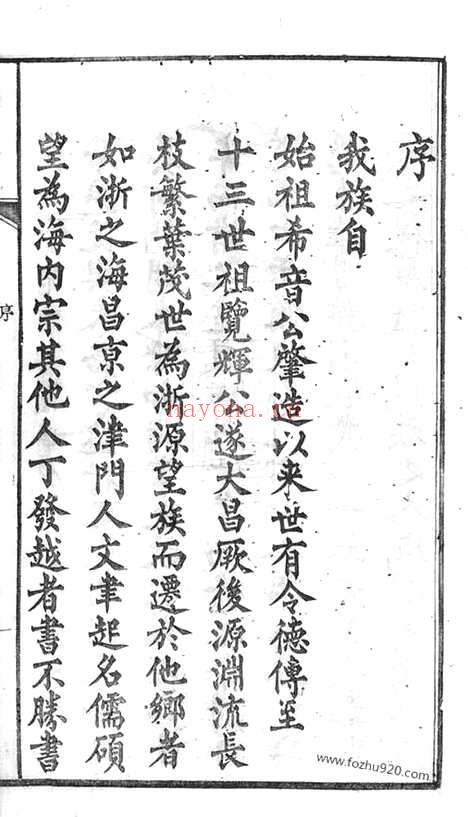 序
我族自
始祖希音公肇造以来世有令德傳至
十三世祖覽輝公遂大昌厥後源淵流長
枝繁葉茂世為浙源望族而遷於他鄉者
如浙之海昌京之津門人文聿起名儒碩
望為海内宗其他人丁發越者書不勝書
序
hayona.cn
www.fozhu920.com